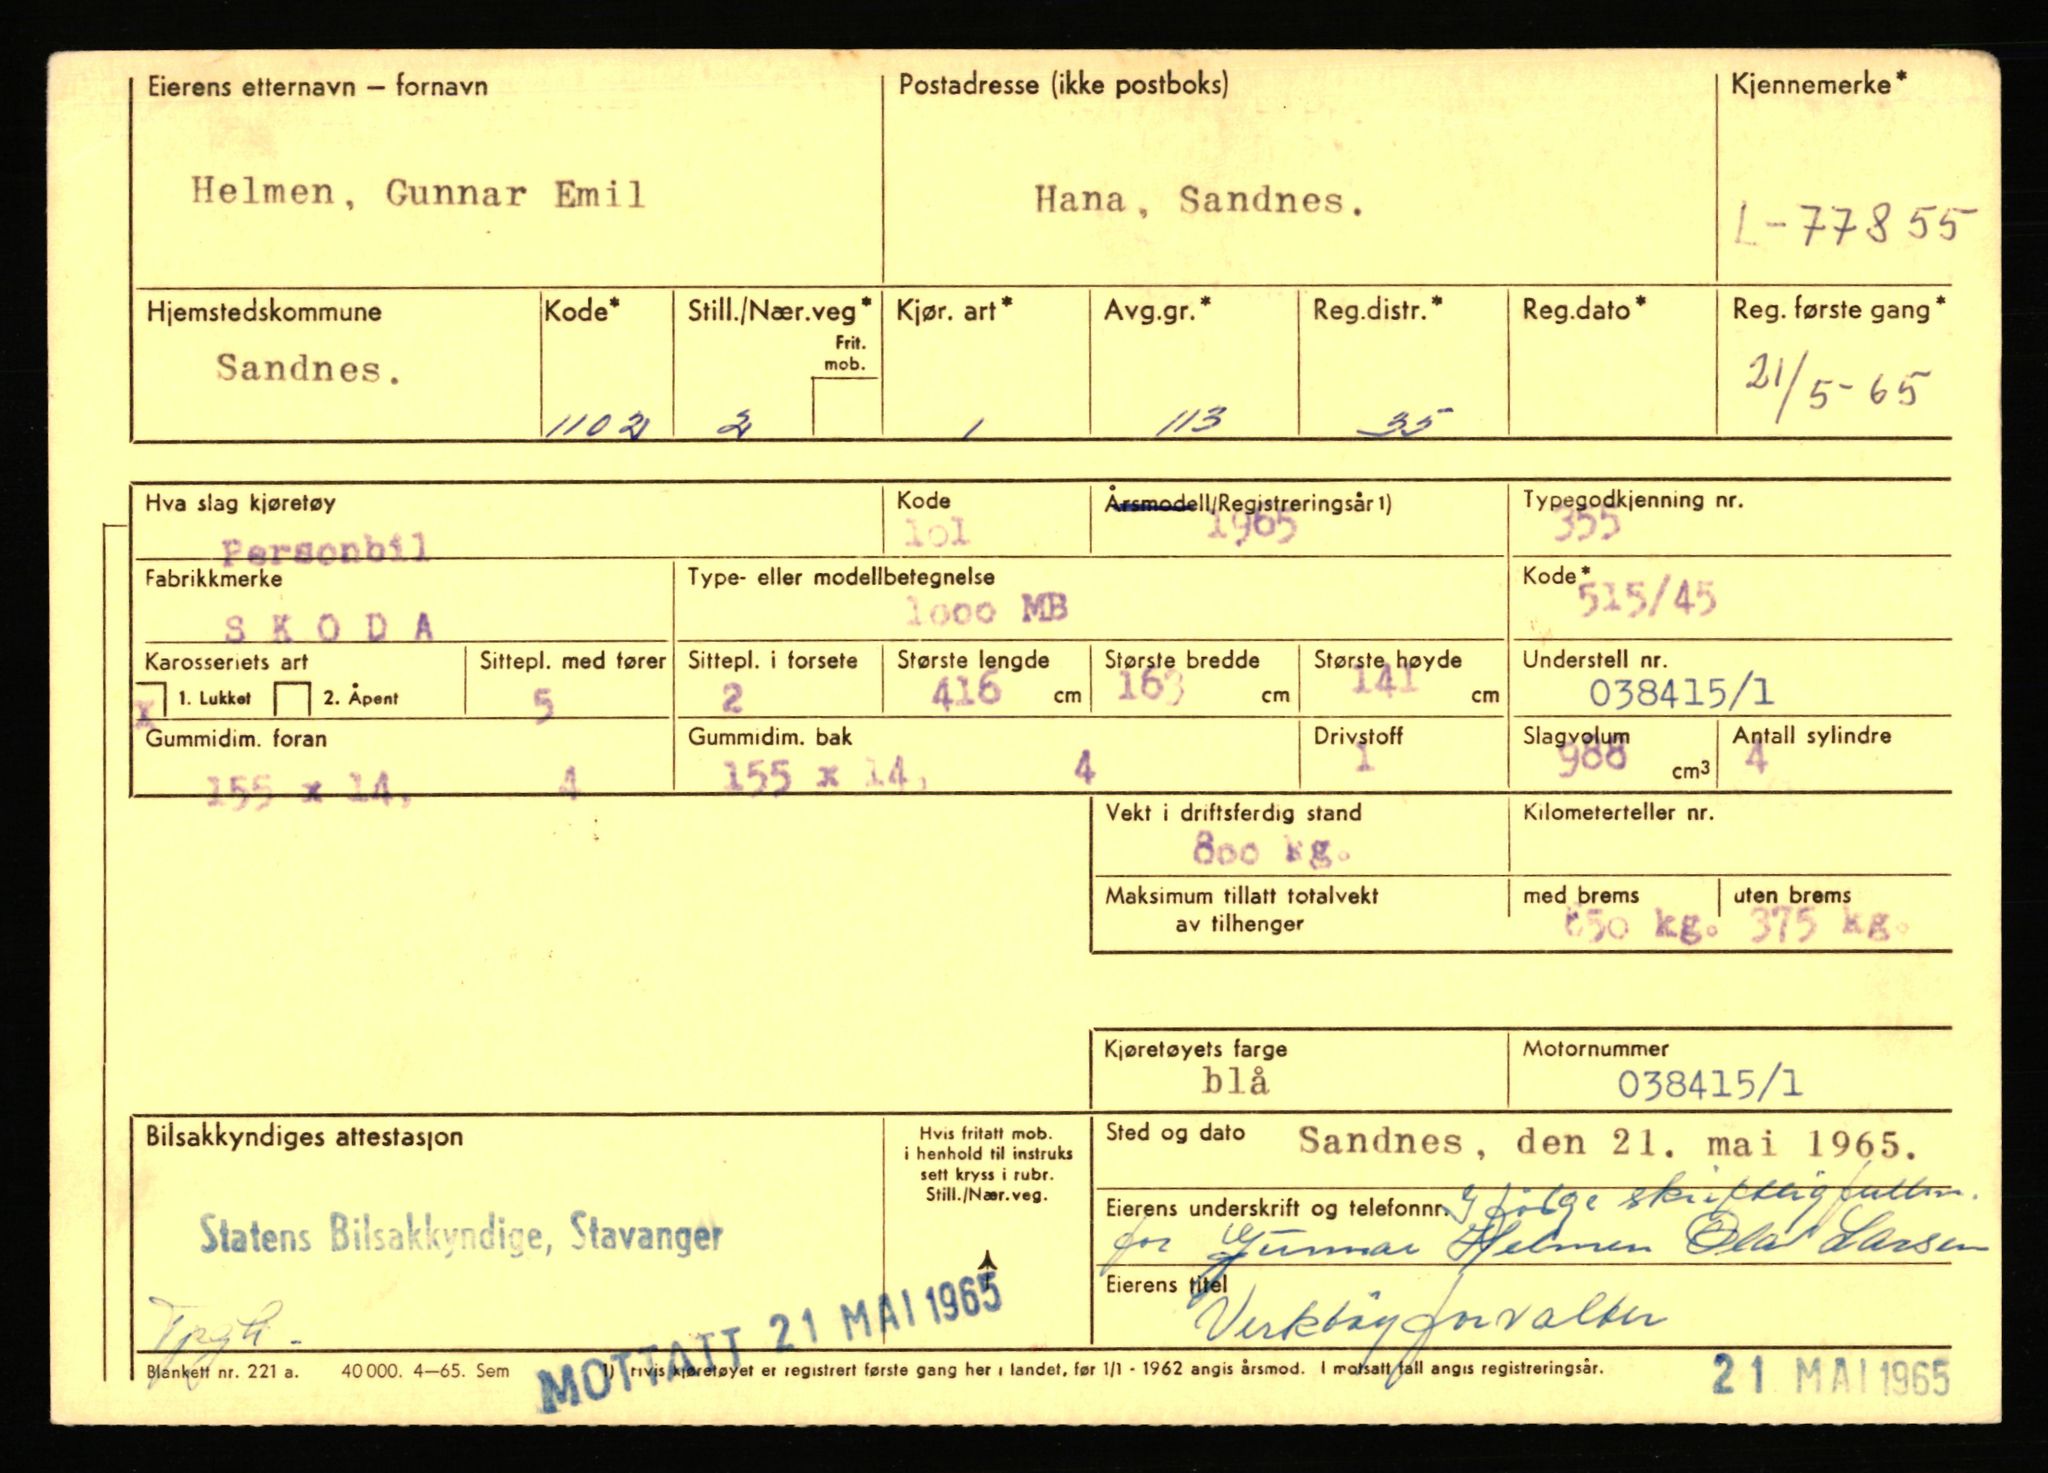 Eierens etternavn — fornavn
Postadresse (ikke postboks)
Kjennemerke*
Helmen, Gunnar Emil
Hana, Sandnes.
L-77855
Hjemstedskommune
Kode*
Still./Nær.veg*
Frit.
mob.
Kjør. art*
Avg.gr.*
Reg.distr.*
Reg.dato*
Reg. første gang*
Sandnes.
1102
2
1
113
35
21/5-65
Hva slag kjøretøy
Kode
Årsmodell/Registreringsår 1)
Typegodkjenning nr.
Personbil
lol
1965
355
Fabrikkmerke
Type- eller modellbetegnelse
Kode*
S K O D A
looo MB
515/45
Karosseriets art
Sittepl. med fører
Sittepl. i forsete
Største lengde
Største bredde
Største høyde
Understell nr.
x 1. Lukket 2. Åpent
5
2
416 cm
163 cm
141 cm
038415/1
Gummidim. foran
Gummidim. bak
Drivstoff
Slagvolum
Antall sylindre
155 x 14, 4
155 x 14, 4
1
988 cm3
4
Vekt i driftsferdig stand
Kilometerteller nr.
8oo kg.
Maksimum tillatt totalvekt
av tilhenger
med brems
uten brems
650 kg.
375 kg.
Kjøretøyets farge
Motornummer
blå
038415/1
Bilsakkyndiges attestasjon
Hvis fritatt mob.
i henhold til instruks
sett kryss i rubr.
Still./Nær.veg.
Sted og dato
Sandnes, den 21. mai 1965.
Eierens underskrift og telefonnr.
I følge skriftlig fullm.
for Gunnar Helmen Olav Larsen
Statens Bilsakkyndige, Stavanger
Eierens titel
Verktøyforvalter
MOTTATT 21 MAI 1965
Blankett nr. 221 a. 40 000. 4—65. Sem
1) Hvis kjøretøyet er registrert første gang her i landet, før 1/1 - 1962 angis årsmod. I motsatt fall angis registreringsår.
21 MAI 1965